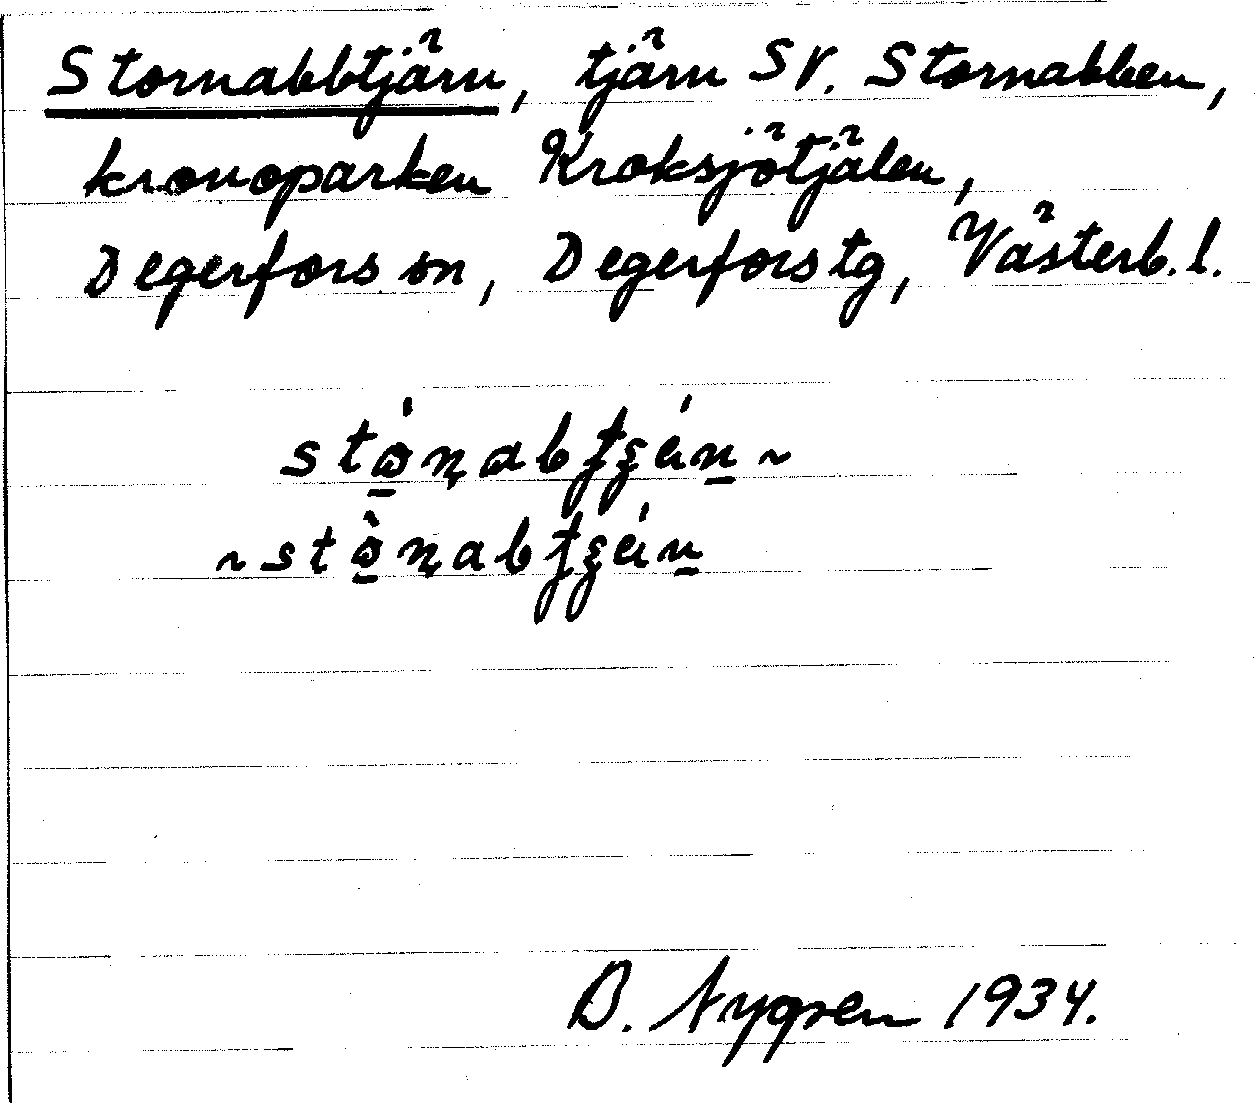 Stornabbtjärn, tjärn SV. Stornabben,
kronoparken Kroksjötjälen,
Degerfors sn, Degerfors tg, Västerb. l.
B. Nygren 1934.